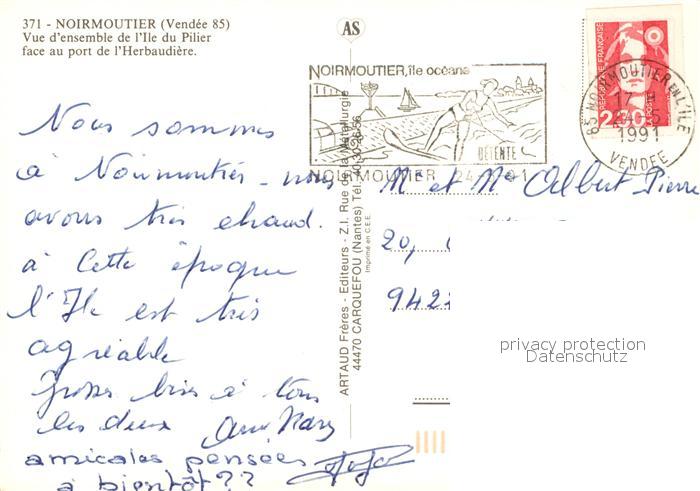 371 - NOIRMOUTIER (Vendée 85)
Vue d'ensemble de l'Ile du Pilier
face au port de l'Herbaudière.
AS
NOIRMOUTIER, île océane
DÉTENTE
NOIRMOUTIER 24
85 NOIRMOUTIER EN L'ILE
17 H
1991
VENDEE
2,30
Nous sommes
à Noirmoutier - nous
avons très chaud.
à cette époque
l'Ile est très
agréable
Grosses bises à tous
les deux
amicales pensées
à bientôt ??
ARTAUD Frères - Editeurs - Z.I. Rue de la Métallurgie
44470 CARQUEFOU (Nantes) Tél. 40.30.26.56
Imprimé en C.E.E.
Mr et Me Albert Pierre
20,
9422
privacy protection
Datenschutz